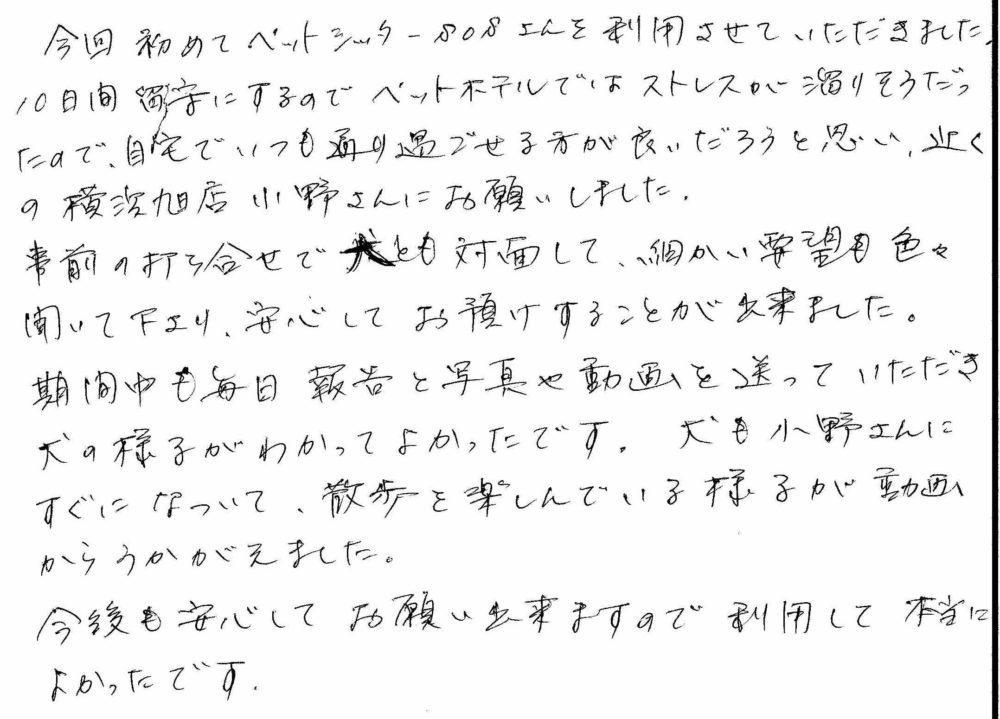 今回初めてペットシッターSOSさんを利用させていただきました。
10日間留守にするのでペットホテルではストレスが溜りそうだっ
たので、自宅でいつも通り過ごせる方が良いだろうと思い、近く
の横浜旭店小野さんにお願いしました。
事前の打ち合せで犬とも対面して、細かい要望も色々
聞いて下さり、安心してお預けすることが出来ました。
期間中も毎日報告と写真や動画を送っていただき
犬の様子がわかってよかったです。犬も小野さんに
すぐになついて、散歩を楽しんでいる様子が動画
からうかがえました。
今後も安心してお願い出来ますので利用して本当に
よかったです。